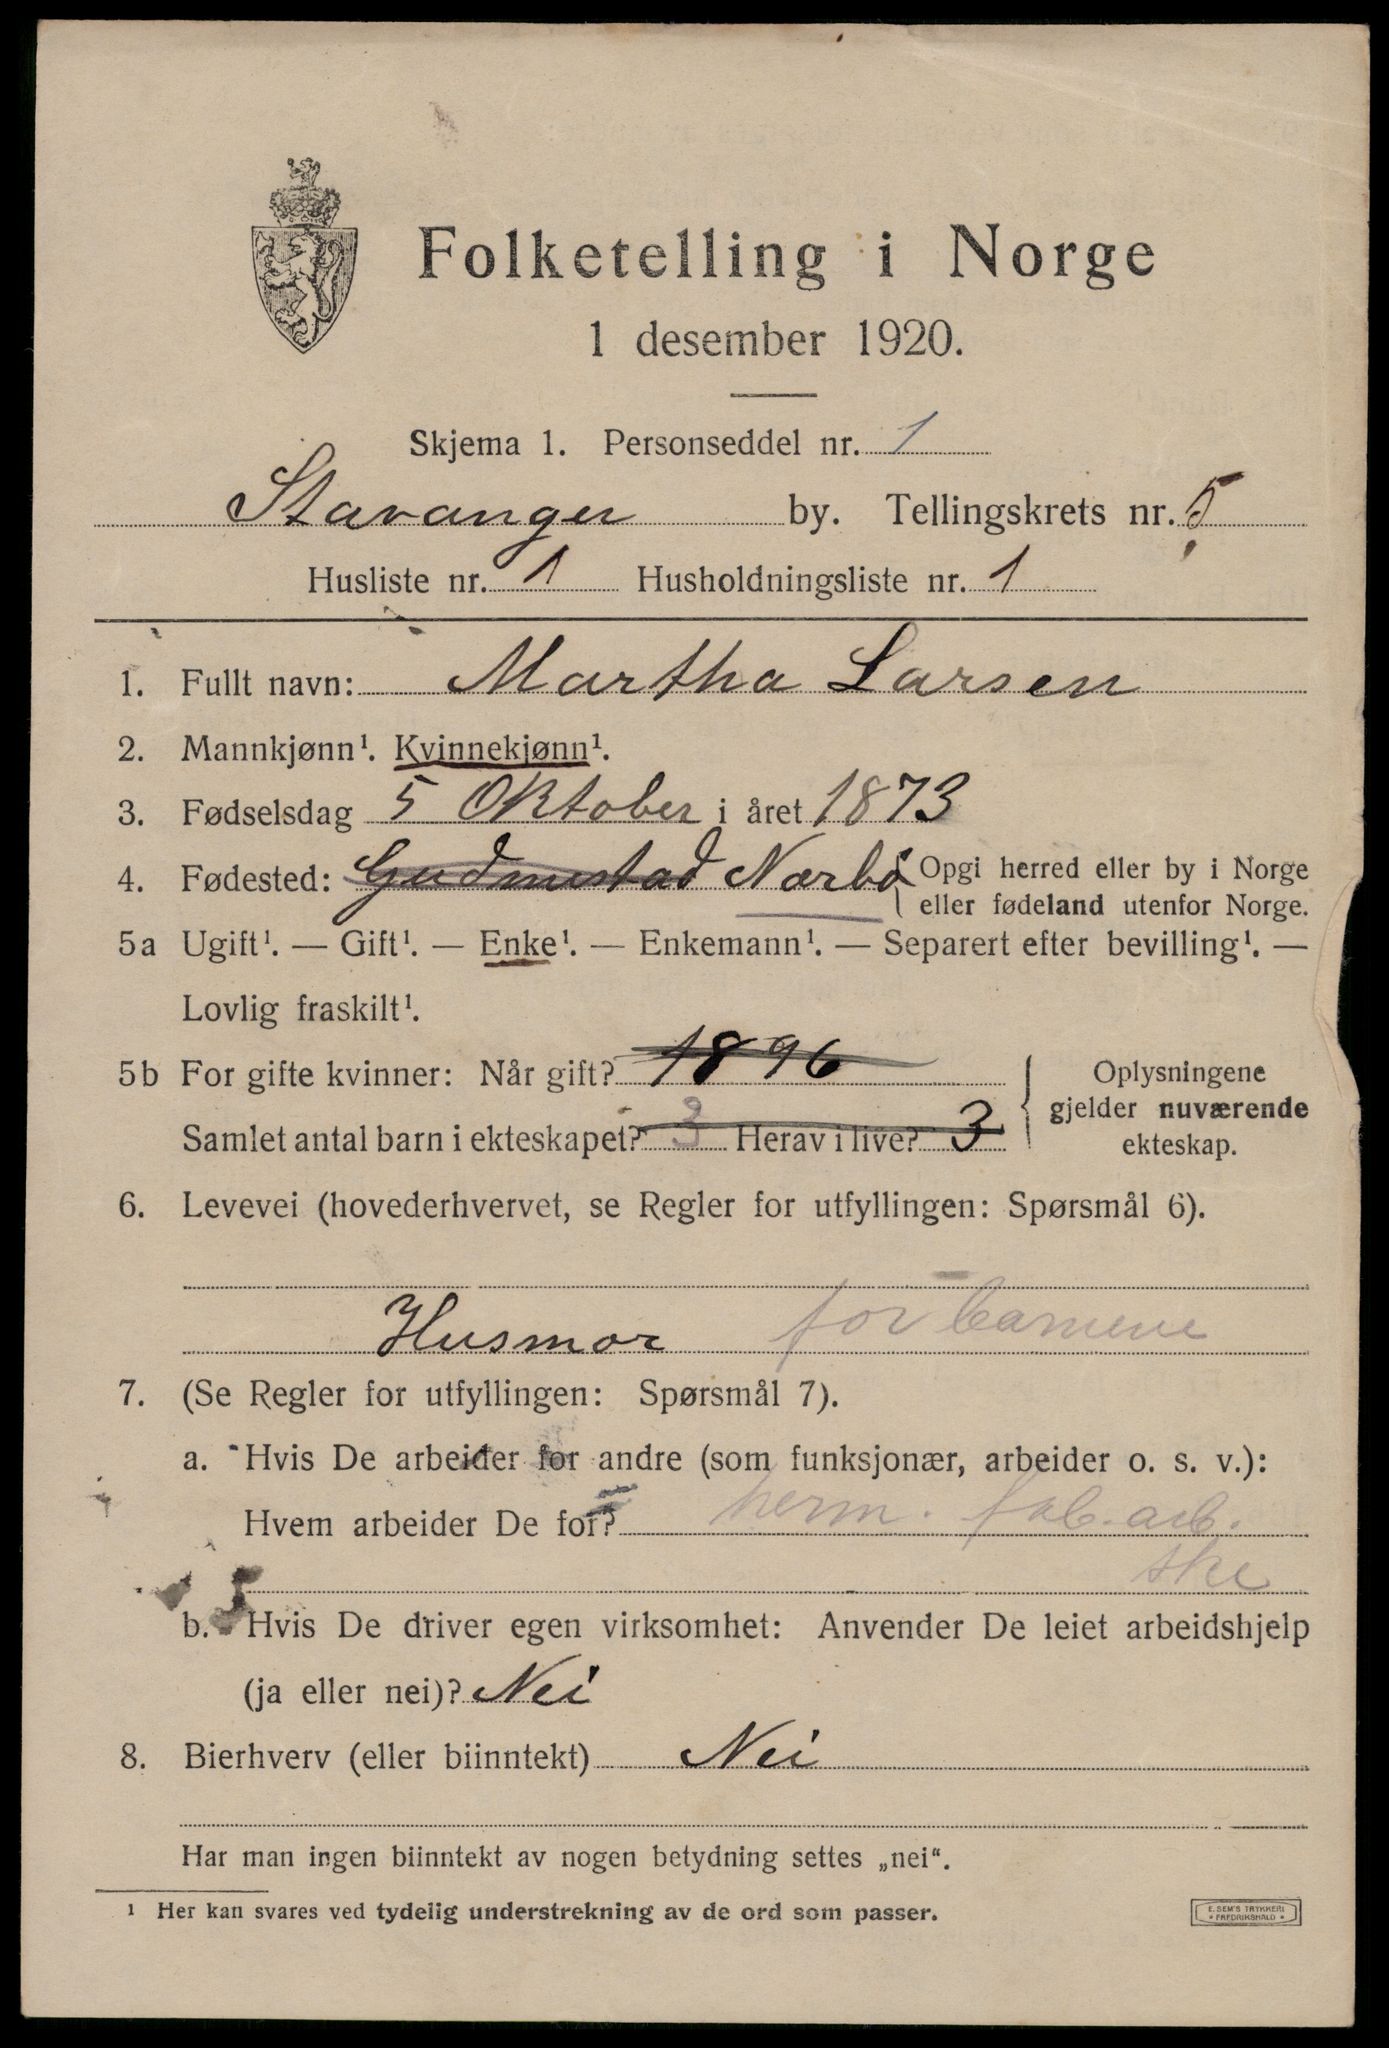 Folketelling i Norge
1 desember 1920.
Skjema 1. Personseddel nr. 1
Stavanger by. Tellingskrets nr. 5
Husliste nr. 1 Husholdningsliste nr. 1
1. Fullt navn: Martha Larsen
2. Mannkjønn¹. Kvinnekjønn¹.
3. Fødselsdag 5 Oktober i året 1873
4. Fødested: Gudmestad Nærbø { Opgi herred eller by i Norge
eller fødeland utenfor Norge.
5a Ugift¹. — Gift¹. — Enke¹. — Enkemann¹. — Separert efter bevilling¹. —
Lovlig fraskilt¹.
5b For gifte kvinner: Når gift? 1896
Samlet antal barn i ekteskapet? 3 Herav i live? 3
Oplysningene
gjelder nuværende
ekteskap.
6. Levevei (hovederhvervet, se Regler for utfyllingen: Spørsmål 6).
Husmor for barnene
7. (Se Regler for utfyllingen: Spørsmål 7).
a. Hvis De arbeider for andre (som funksjonær, arbeider o. s. v.):
Hvem arbeider De for? herm. fab. arb.
ske
b. Hvis De driver egen virksomhet: Anvender De leiet arbeidshjelp
(ja eller nei)? Nei
8. Bierhverv (eller biinntekt) Nei
Har man ingen biinntekt av nogen betydning settes „nei“.
¹ Her kan svares ved tydelig understrekning av de ord som passer.
E. SEM'S TRYKKERI
* FREDRIKSHALD *